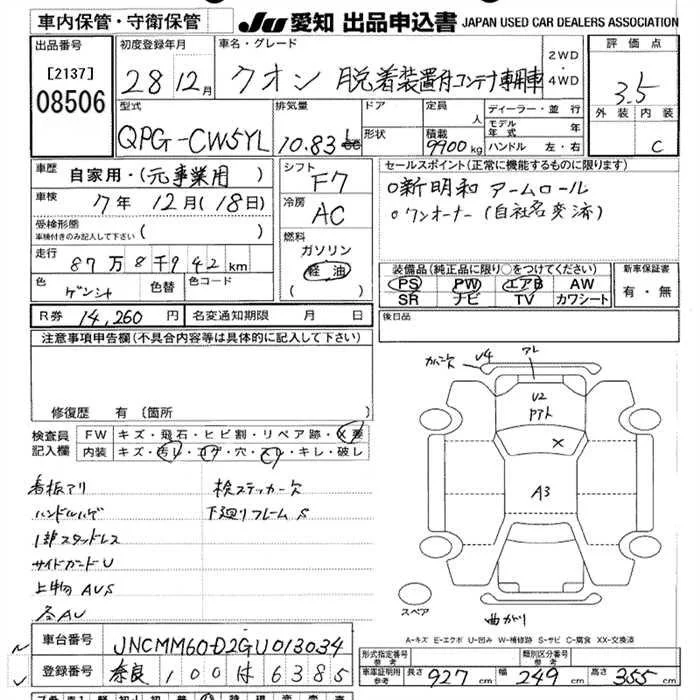 車内保管・守衛保管
JU 愛知 出品申込書 JAPAN USED CAR DEALERS ASSOCIATION
出品番号
[2137]
08506
初度登録年月
28年12月
車名・グレード
クオン 脱着装置付コンテナ専用車
2WD・4WD
評価点
3.5
外装 内装
C
型式
QPG-CW5YL
排気量
10.83
ドア
形状
定員 人
積載 9900kg
ディーラー・並行
モデル年式 年
ハンドル 左・右
車歴
自家用・(元事業用)
車検
7年 12月(18日)
受検形態
車検付きのみ記入して下さい ( )
走行
87万8千942km
色
ゲンシャ
色替
色コード
シフト
F7
冷房
AC
燃料
ガソリン
軽油
( )
セールスポイント(正常に機能するものに限ります)
○新明和 アームロール
○ワンオーナー(自社名変済)
装備品(純正品に限り○をつけてください)
PS PW エアB AW
SR ナビ TV カワシート
新車保証書
有・無
R券 14,260円
名変通知期限 月 日
後日品
注意事項申告欄(不具合内容等は具体的に記入して下さい)
修復歴 有 〔箇所
検査員記入欄
FW キズ・飛石・ヒビ割・リペア跡・X要
内装 キズ・汚レ・コゲ・穴・スレ・キレ・破レ
看板アリ
ハンドルハゲ
1部スタッドレス
サイドガードU
上物 AUS
各AU
検ステッカー欠
下廻りフレームS
カバー欠
U4
アレ
U2
アトX
A3
スペア
曲がり
A-キズ E-エクボ U-凹み W-補修跡 S-サビ C-腐食 XX-交換済
車台番号 JNCMM60D2GU013034
登録番号 奈良 100 は 6385
形式指定番号
参考
類別区分番号
参考
車庫証明用参考
長さ 927cm
幅 249cm
高さ 355cm